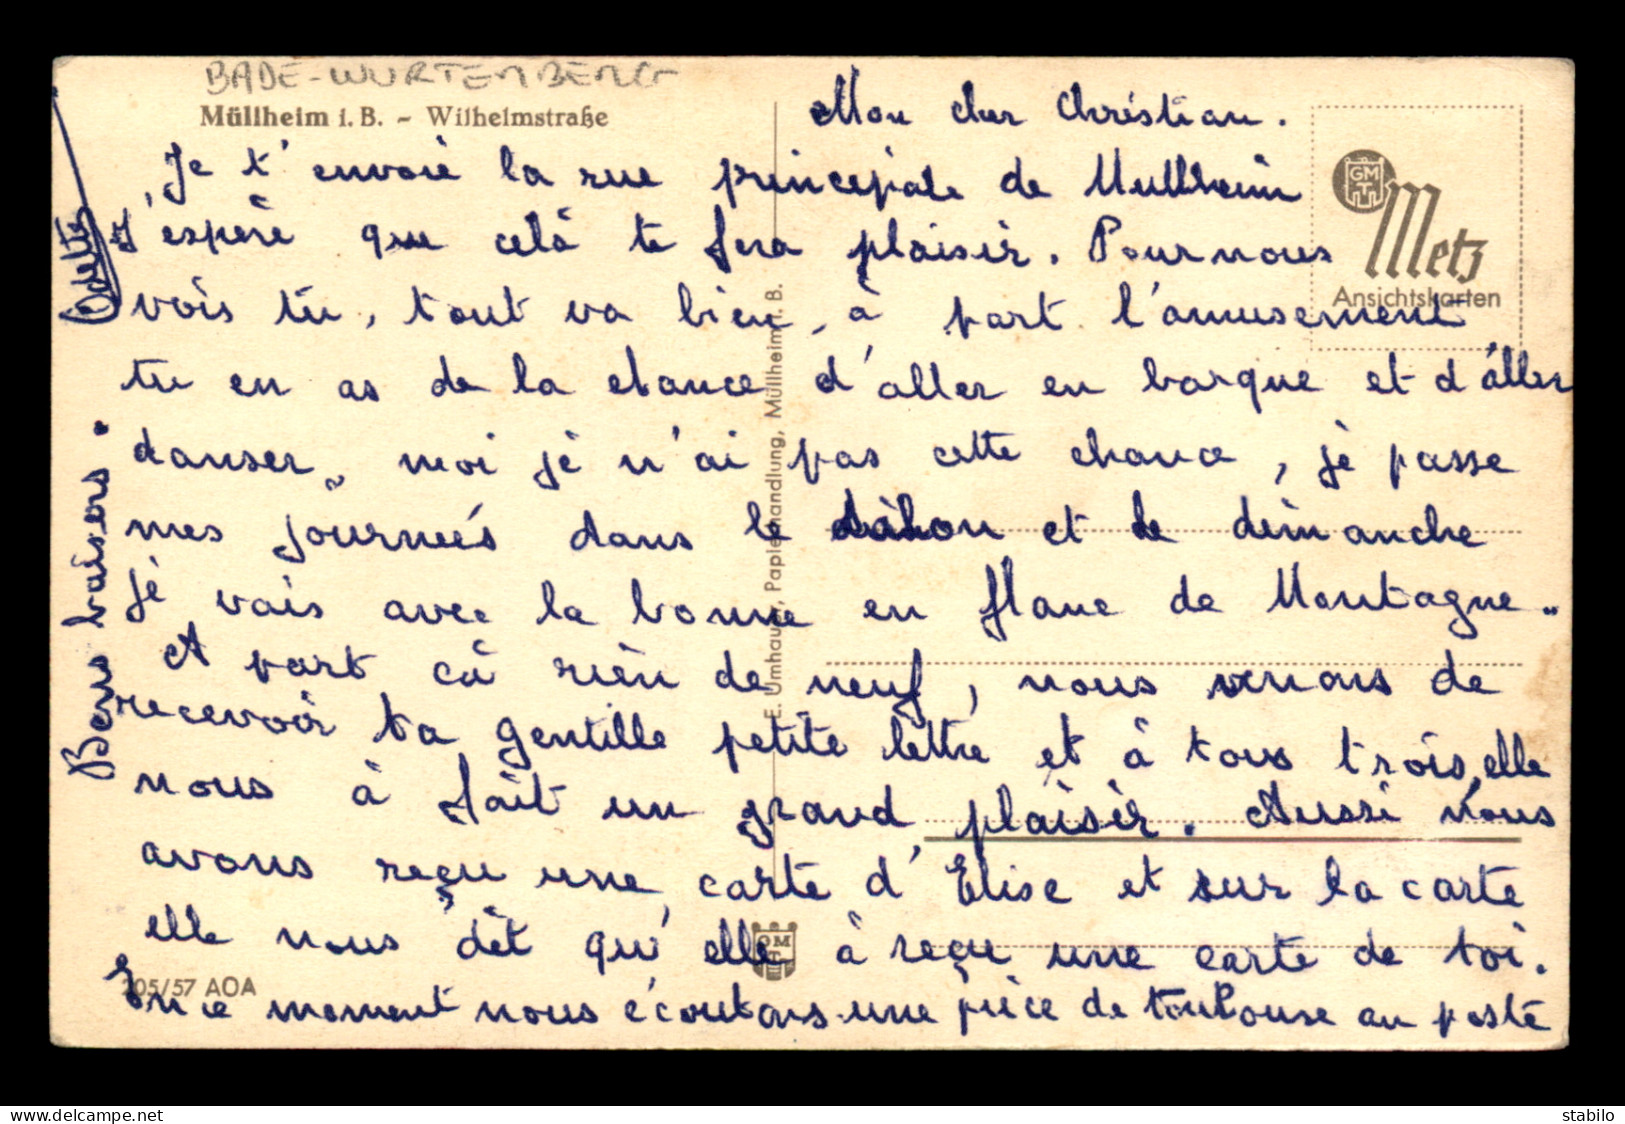 BADE-WURTEMBERG
Müllheim i. B. - Wilhelmstraße
Mon cher Christian.
Je t'envoie la rue principale de Mullheim
J'espère que celà te fera plaisir. Pour nous
vois tu, tout va bien, à part l'amusement
tu en as de la chance d'aller en barque et d'aller
danser, moi je n'ai pas cette chance, je passe
mes journeés dans le salon et le dimanche
je vais avec la bonne en flanc de Montagne..
A part cà rien de neuf, nous venons de
recevoir ta gentille petite lettre et à tous trois, elle
nous à fait un grand plaisir. Aussi nous
avons reçu une carte d'Elise et sur la carte
elle nous dit qu'elle à reçu une carte de toi.
En ce moment nous écoutons une pièce de Toulouse au poste
Bons baisers.
Odette
GMT
Metz
Ansichtskarten
E. Umhauer, Papierhandlung, Müllheim i. B.
GMT
205/57 AOA
www.delcampe.net
stabilo